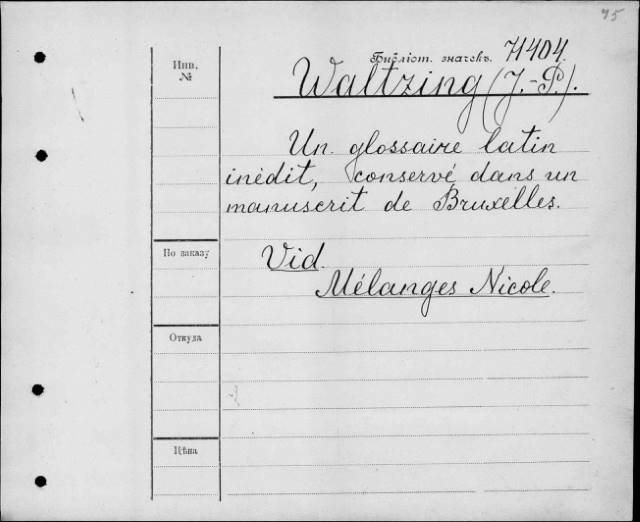 75
Инв.
№
Библіот. значекъ. 71404.
Waltzing (J.-P.).
Un glossaire latin
inédit, conservé dans un
manuscrit de Bruxelles.
По заказу
Vid.
Mélanges Nicole.
Откуда
Цѣна